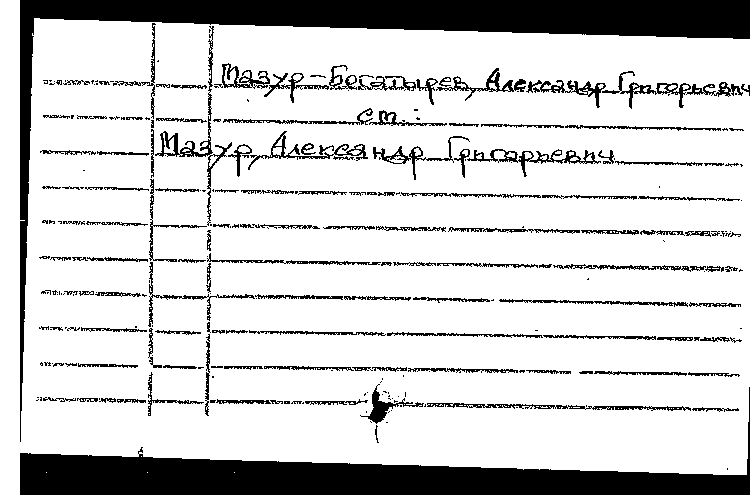 Мазур-Богатырев, Александр Григорьевич
см.:
Мазур, Александр Григорьевич